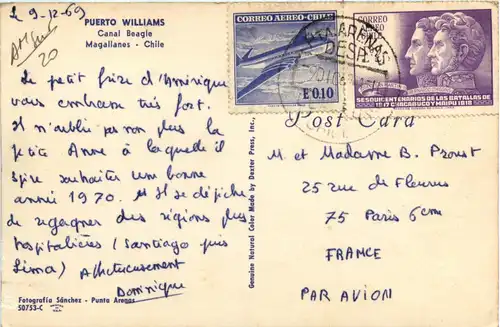 le 9-12-69
PUERTO WILLIAMS
Canal Beagle
Magallanes - Chile
20
Le petit frère d'Amérique
vous embrasse très fort.
Il n'oublie pas non plus la
petite Anne à laquelle il
souhaiter une bonne
année 1970. et Il se dépêche
de regagner des régions plus
hospitalières (Santiago puis
Lima) Affectueusement
Dominique
Fotografía Sánchez - Punta Arenas
50753-C
Genuine Natural Color Made by Dexter Press, Inc.
CORREO AEREO-CHILE
E°0.10
CORREO
AEREO
SESQUICENTENARIOS DE LAS BATALLAS DE
1817 CHACABUCO Y MAIPU 1818
PTA. ARENAS
DESP.
Post Card
M et Madame B. Proust
25 rue de Fleurus
75 Paris 6em
FRANCE
PAR AVION